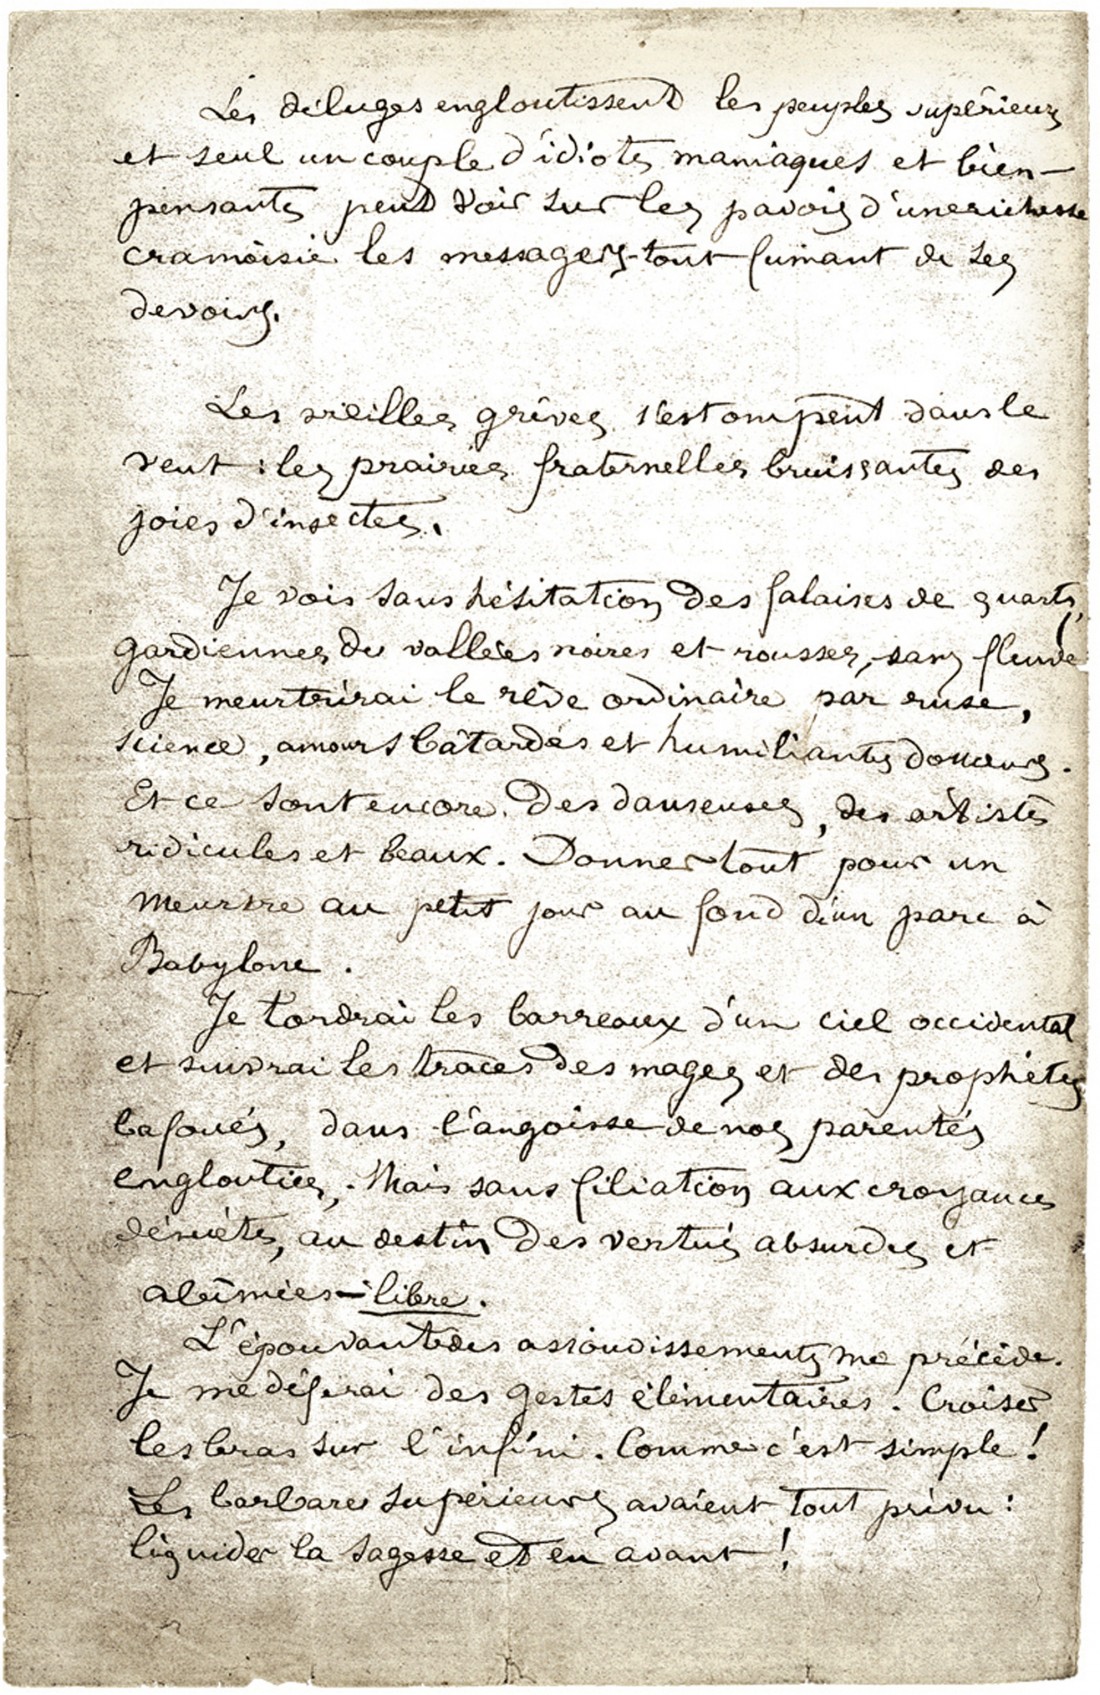 Les déluges engloutissent les peuples supérieurs
et seul un couple d'idiots maniaques et bien-
pensants peut voir sur les pavois d'une richesse
cramoisie les messagers tout fumant de ses
devoirs.
Les vieilles grèves s'estompent dans le
vent : les prairies fraternelles bruissantes des
joies d'insectes.
Je vois sans hésitation des falaises de quartz,
gardiennes de vallées noires et rousses, sans fleuve
Je meurtrirai le rêve ordinaire par ruse,
science, amours bâtardes et humiliantes douceurs.
Et ce sont encore des danseuses, des artistes
ridicules et beaux. Donner tout pour un
meurtre au petit jour au fond d'un parc à
Babylone.
Je tordrai les barreaux d'un ciel occidental
et suivrai les traces des mages et des prophètes
bafoués, dans l'angoisse de nos parentés
englouties. Mais sans filiation aux croyances
désuètes, au destin des vertus absurdes et
abîmées - libre.
L'épouvante des assourdissements me précède.
Je me déferai des gestes élémentaires. Croiser
les bras sur l'infini. Comme c'est simple !
Les barbares supérieurs avaient tout prévu :
liquider la sagesse et en avant !